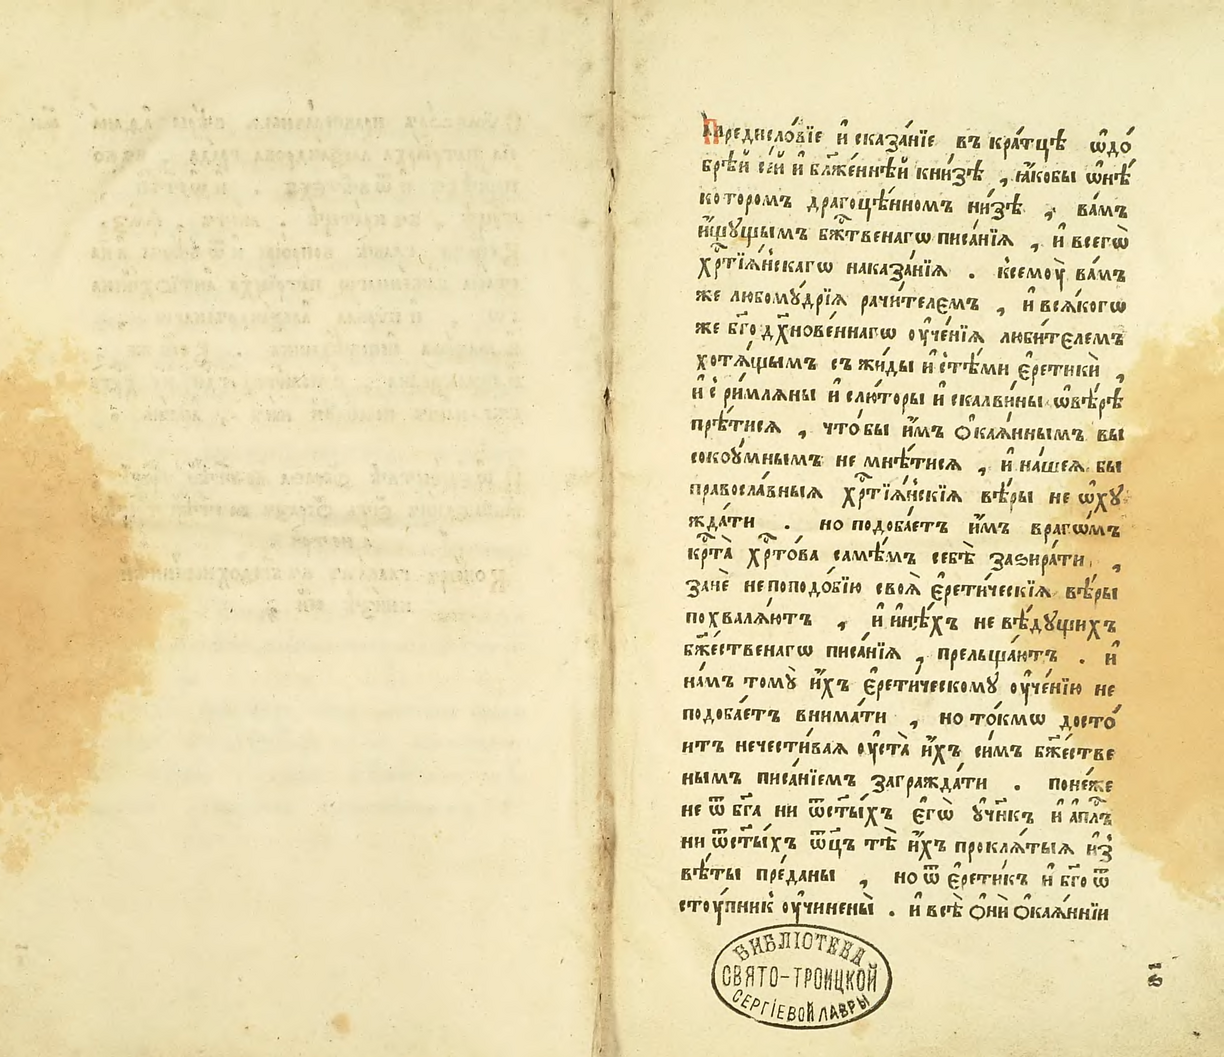 Предисло́вїе и҆ сказа́нїе въ кра́тцѣ ѡ҆до́
брѣй се́й и҆ бл҃же́ннѣй кни́зѣ , ꙗ҆́кобы ѡ҆нѣ́
которомъ драгоцѣ́нномъ ни́зѣ , ва́мъ
и҆́щꙋщымъ бжⷭ҇твенагѡ писа́нїѧ , и҆ всегѡ̀
хрⷭ҇тїѧ́нскагѡ наказа́нїѧ . ксемоу̀ ва́мъ
же любомꙋ́дрїѧ рачи́телємъ , и҆ всѧ́когѡ
же бг҃о дх҃нове́ннагѡ оу҆че́нїѧ люби́тєлемъ
хотѧ́щымъ съ жи́ды и҆ стѣ́ми є҆ретикѝ ,
и҆ с ри́млѧны и҆ слю́торы и҆ скалви́ны ѡ҆вѣ́рѣ
прѣ́тисѧ , что́бы и҆̀мъ ѻ҆каѧ́ннымъ вы
сокоꙋ́мнымъ не мнѣ́тисѧ , и҆ на́шеѧ бы
правосла́вныѧ хрⷭ҇тїѧ́нскїѧ вѣ́ры не ѡ҆хꙋ
жда́ти . но подоба́етъ и҆̀мъ врагѡ́мъ
крⷭ҇та̀ хрⷭ҇то́ва самѣ́мъ себѐ зазира́ти ,
занѐ не поподо́бїю своѧ̀ є҆рети́ческїѧ вѣ́ры
похвалѧ́ютъ , и҆ и҆нѣ́хъ не вѣ́дꙋщихъ
бж҃е́ственагѡ писа́нїѧ , прельща́ютъ . и҆
на́мъ томꙋ̀ и҆́хъ є҆рети́ческомꙋ оу҆че́нїю не
подоба́етъ внима́ти , но то́кмѡ досто́
итъ нечести́ваѧ оу҆ста̀ и҆́хъ си́мъ бж҃е́стве
нымъ писа́нїемъ заграждаⷮ́и . поне́же
не ѿ бг҃а ни ѿст҃ы́хъ є҆гѡ̀ ᲂу҆чн҃къ и҆ а҆пⷭ҇лъ
ни ѿст҃ы́хъ ѿц҃ъ тѣ̀ и҆́хъ проклѧ́тыѧ и҆з̾
вѣ́ты пре́даны , но ѿ є҆рети́къ и҆ бг҃о ѿ
стоу́пник̾ оу҆чинены̀ . и҆ всѣ̀ ѻ҆нѝ ѻ҆каѧ́ннїи
БИБЛІОТЕКА
СВЯТО-ТРОИЦКОЙ
СЕРГІЕВОЙ ЛАВРЫ